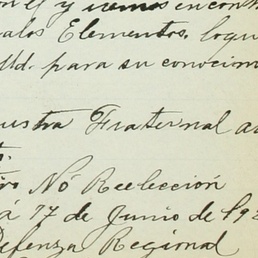 y vemos encon
alos Elementos, loqu
Ud. para su conocim
uestra Fraternal a
No Reelección
á 17 de Junio de 192
Defenza Regional